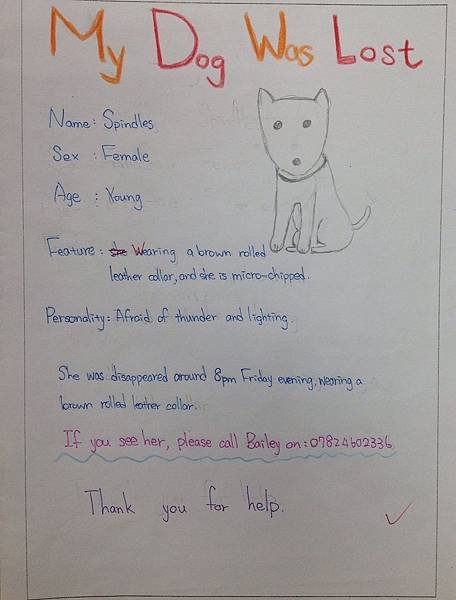 My Dog Was Lost
Name : Spindles
Sex : Female
Age : Young
Feature : she Wearing a brown rolled
leather collar, and she is micro-chipped.
Personality : Afraid of thunder and lighting.
She was disappeared around 8pm Friday evening, wearing a
brown rolled leather collar.
If you see her, please call Bailey on : 07824602336.
Thank you for help.